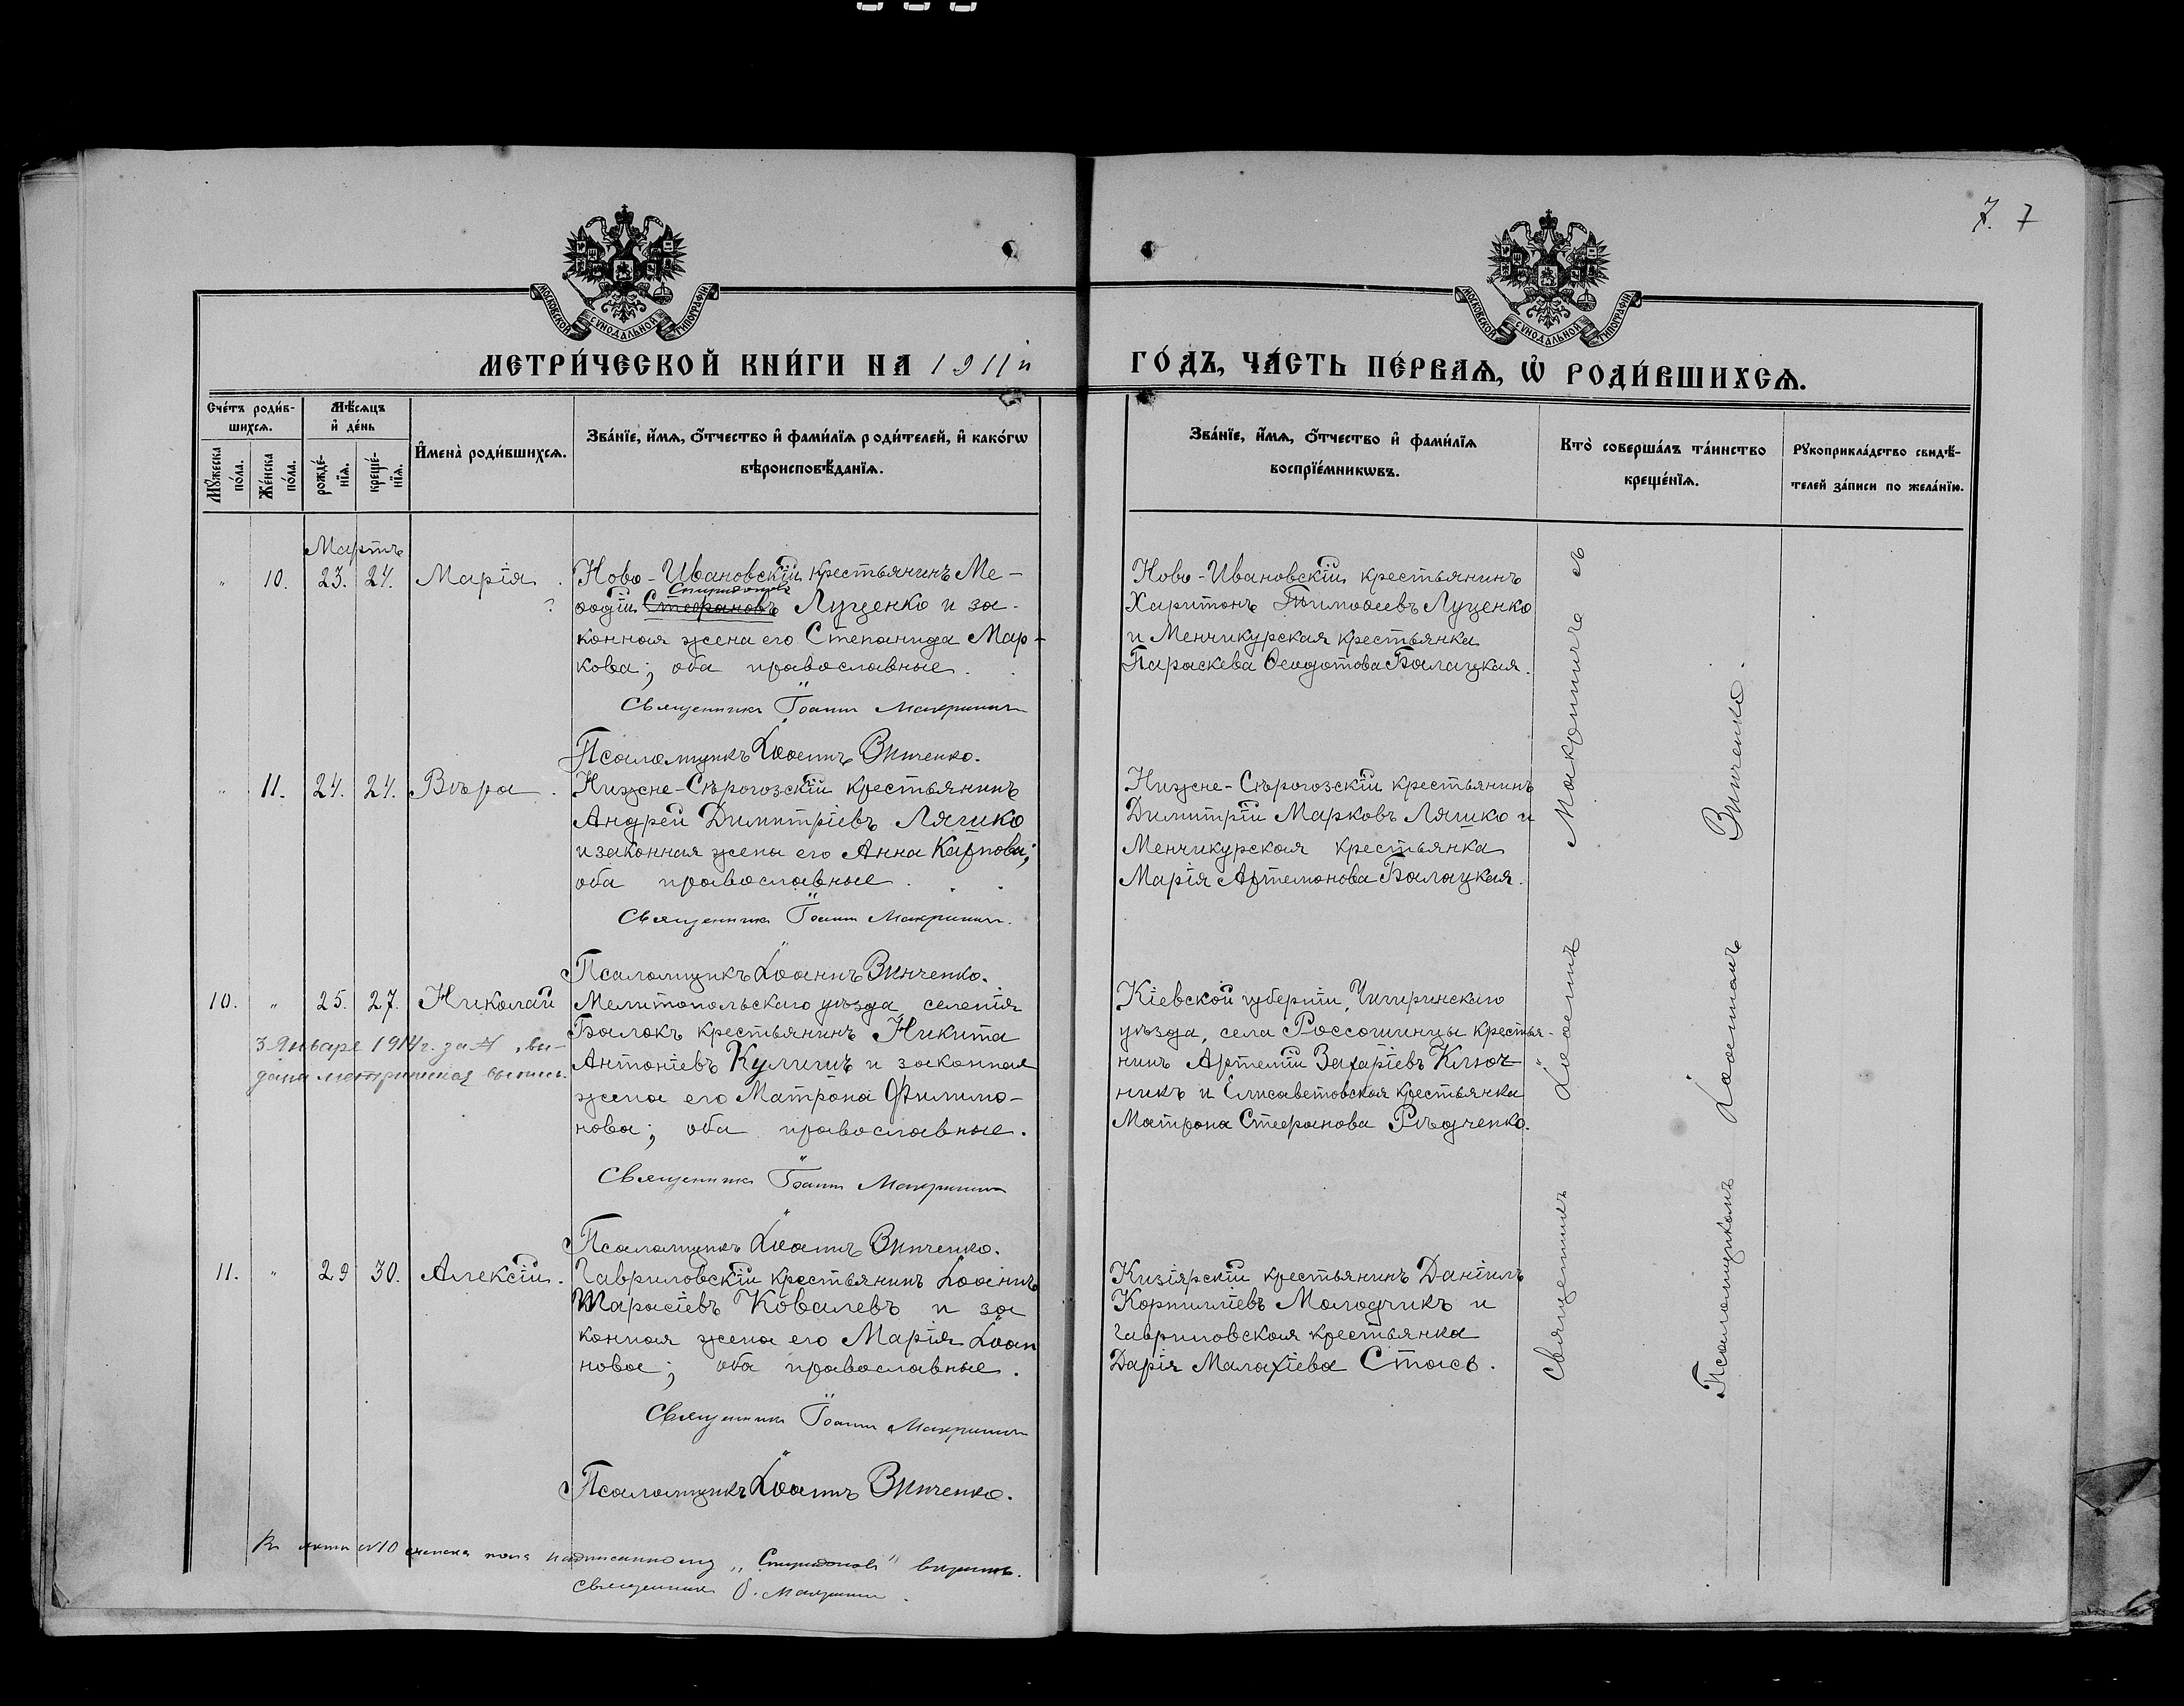 7. 7
МОСКОВСКОЙ СѴНОДАЛЬНОЙ ТИПОГРАФІИ
МОСКОВСКОЙ СѴНОДАЛЬНОЙ ТИПОГРАФІИ
МЕТРИ́ЧЕСКОЙ КНИ́ГИ НА 1911й ГО́ДЪ, ЧА́СТЬ ПЕ́РВАѦ, Ѡ҆ РОДИ́ВШИХСѦ.
Сче́тъ роди́в-
шихсѧ.
Мꙋ́жеска
по́ла.
Же́нска
по́ла.
Мѣ́сѧцъ
и҆ де́нь
рожде́-
нїѧ.
креще́-
нїѧ.
И҆мена̀ роди́вшихсѧ.
Зва́нїе, и҆́мѧ, ѻ҆́тчество и҆ фами́лїѧ роди́телей, и҆ како́гѡ
вѣроисповѣ́данїѧ.
Зва́нїе, и҆́мѧ, ѻ҆́тчество и҆ фами́лїѧ
воспрїе́мникѡвъ.
Кто̀ соверша́лъ та́инство
креще́нїѧ.
Рꙋкоприкла́дство свидѣ́-
телей за́писи по жела́нїю.
Мартъ
" 10. 23. 24. Марія.
Ново-Ивановскій крестьянинъ Ме-
Спиридоновъ
ѳодій Стефановъ Луценко и за-
конная жена его Степанида Мар-
кова; оба православные.
Священникъ Іоаннъ
Псаломщикъ Іоаннъ Винченко.
Ново-Ивановскій крестьянинъ
Харитонъ Тимоѳеевъ Луценко
и Менчикурская крестьянка
Параскева Ѳеодотова Балацкая.
" 11. 24. 24. Вѣра.
Нижне-Сѣрогозскій крестьянинъ
Андрей Димитріевъ Ляшко
и законная жена его Анна Карпова;
оба православные.
Священникъ Іоаннъ
Псаломщикъ Іоаннъ Винченко.
Нижне-Сѣрогозскій крестьянинъ
Димитрій Марковъ Ляшко и
Менчикурская крестьянка
Марія Артемонова Балацкая.
10. " 25. 27. Николай
3 Января 1914 г. за №, вы-
дана метрическая выпись.
Мелитопольскаго уѣзда, селенія
Балокъ крестьянинъ Никита
Антоніевъ Кулишъ и законная
жена его Матрона Филимо-
нова; оба православные.
Священникъ Іоаннъ
Псаломщикъ Іоаннъ Винченко.
Кіевской губерніи, Чигиринскаго
уѣзда, села Россошинцы крестья-
нинъ Артемій Захаріевъ Ключ-
никъ и Елисаветовская крестьянка
Матрона Стефанова Рѣдченко.
11. " 29 30. Алексій.
Гавриловскій крестьянинъ Іоаннъ
Тарасіевъ Ковалевъ и за
конная жена его Марія Іоан
нова; оба православные.
Священникъ Іоаннъ
Псаломщикъ Іоаннъ Винченко.
Кизіярскій крестьянинъ Даніилъ
Корниліевъ Молодчикъ и
Гавриловская крестьянка
Дарія Малахіева Стась.
Священникъ Іоаннъ съ
Псаломщикомъ Іоанномъ Винченко.
Въ актѣ №10 женска пола надписанному „Спиридоновъ" вѣрить.
Священникъ І.